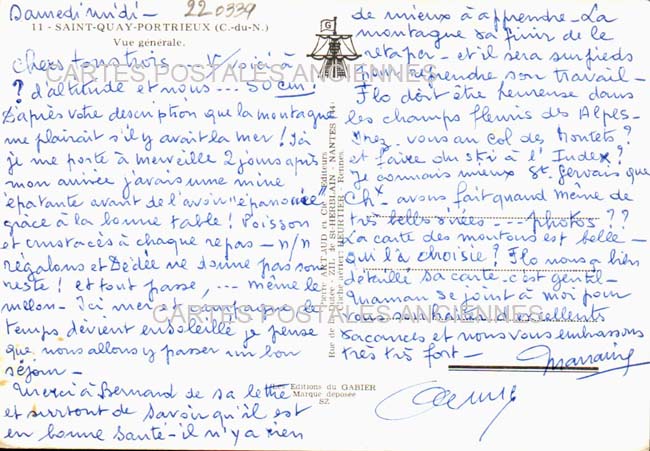 Samedi midi - 220339
11 - SAINT-QUAY-PORTRIEUX (C.-du-N.)
Vue générale.
Chers tous trois ... V/ voici à
? d'altitude et nous ... 50 cm!
D'après votre description que la montagne
me plairait s'il y avait la mer! Ici
je me porte à merveille 2 jours après
mon arrivée j'avais une mine
épatante avant de l'avoir "épanouie"
grâce à la bonne table! Poisson
et crustacés à chaque repas - n/n
régalons et Dédée ne donne pas son
reste! et tout passe, ... même le
melon. Ici aussi et le
temps devient ensoleillé je pense
que nous allons y passer un bon
séjour -
Merci à Bernard de sa lettre
et surtout de savoir qu'il est
en bonne santé - il n'y a rien
de mieux à apprendre - La
montagne va finir de le
retaper - et il sera sur pieds
pour reprendre son travail -
Flo doit être heureuse dans
les champs fleuris des Alpes -
Irez-vous au Col des Montets?
et faire du ski à l'Index?
Je connais mieux St. Gervais que
Chx - avons fait quand même de
très belles virées ... photos??
La carte des moutons est belle -
qui l'a choisie? Flo nous a bien
détaillé sa carte - c'est gentil -
maman se joint à moi pour
vous souhaiter d'excellents
vacances et nous vous embrassons
très très fort - Marraine
G
CARTES POSTALES ANCIENNES
CARTES POSTALES ANCIENNES
Pierre ARTAUD et Cie - Éditeurs
Rue de la Métallurgie - ZIL de St-HERBLAIN - NANTES (44)
Cliché aérien HEURTIER - Rennes
Les Editions du GABIER
Marque déposée
SZ